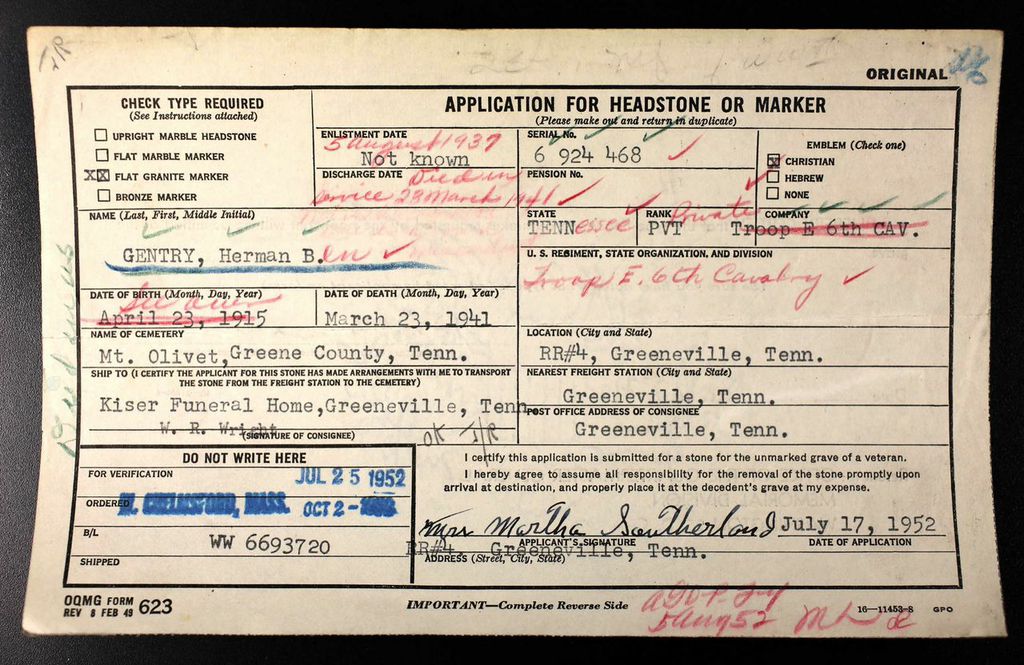 ORIGINAL
CHECK TYPE REQUIRED
(See Instructions attached)
UPRIGHT MARBLE HEADSTONE
FLAT MARBLE MARKER
XX FLAT GRANITE MARKER
BRONZE MARKER
APPLICATION FOR HEADSTONE OR MARKER
(Please make out and return in duplicate)
ENLISTMENT DATE
5 August 1937
Not known
SERIAL No.
6 924 468
EMBLEM (Check one)
X CHRISTIAN
HEBREW
NONE
DISCHARGE DATE Died in
service 23 March 1941
PENSION No.
NAME (Last, First, Middle Initial)
GENTRY, Herman B.en
STATE
TENNessee
RANK Private
PVT
COMPANY
Troop E 6th CAV.
U. S. REGIMENT, STATE ORGANIZATION, AND DIVISION
Troop E. 6th Cavalry
DATE OF BIRTH (Month, Day, Year)
See over
April 23, 1915
DATE OF DEATH (Month, Day, Year)
March 23, 1941
NAME OF CEMETERY
Mt. Olivet, Greene County, Tenn.
LOCATION (City and State)
RR#4, Greeneville, Tenn.
SHIP TO (I CERTIFY THE APPLICANT FOR THIS STONE HAS MADE ARRANGEMENTS WITH ME TO TRANSPORT
THE STONE FROM THE FREIGHT STATION TO THE CEMETERY)
Kiser Funeral Home, Greeneville, Tenn.
W. R. Wright
(SIGNATURE OF CONSIGNEE)
NEAREST FREIGHT STATION (City and State)
Greeneville, Tenn.
POST OFFICE ADDRESS OF CONSIGNEE
Greeneville, Tenn.
OK
DO NOT WRITE HERE
FOR VERIFICATION JUL 25 1952
ORDERED W. CHELMSFORD, MASS. OCT 2 - 1952
B/L
WW 6693720
SHIPPED
I certify this application is submitted for a stone for the unmarked grave of a veteran.
I hereby agree to assume all responsibility for the removal of the stone promptly upon
arrival at destination, and properly place it at the decedent's grave at my expense.
Mrs Martha Southerland
APPLICANT'S SIGNATURE
July 17, 1952
DATE OF APPLICATION
RR#4 Greeneville, Tenn.
ADDRESS (Street, City, State)
OQMG FORM 623
REV 8 FEB 49
IMPORTANT—Complete Reverse Side
5 Aug 52
16—11453-8 GPO